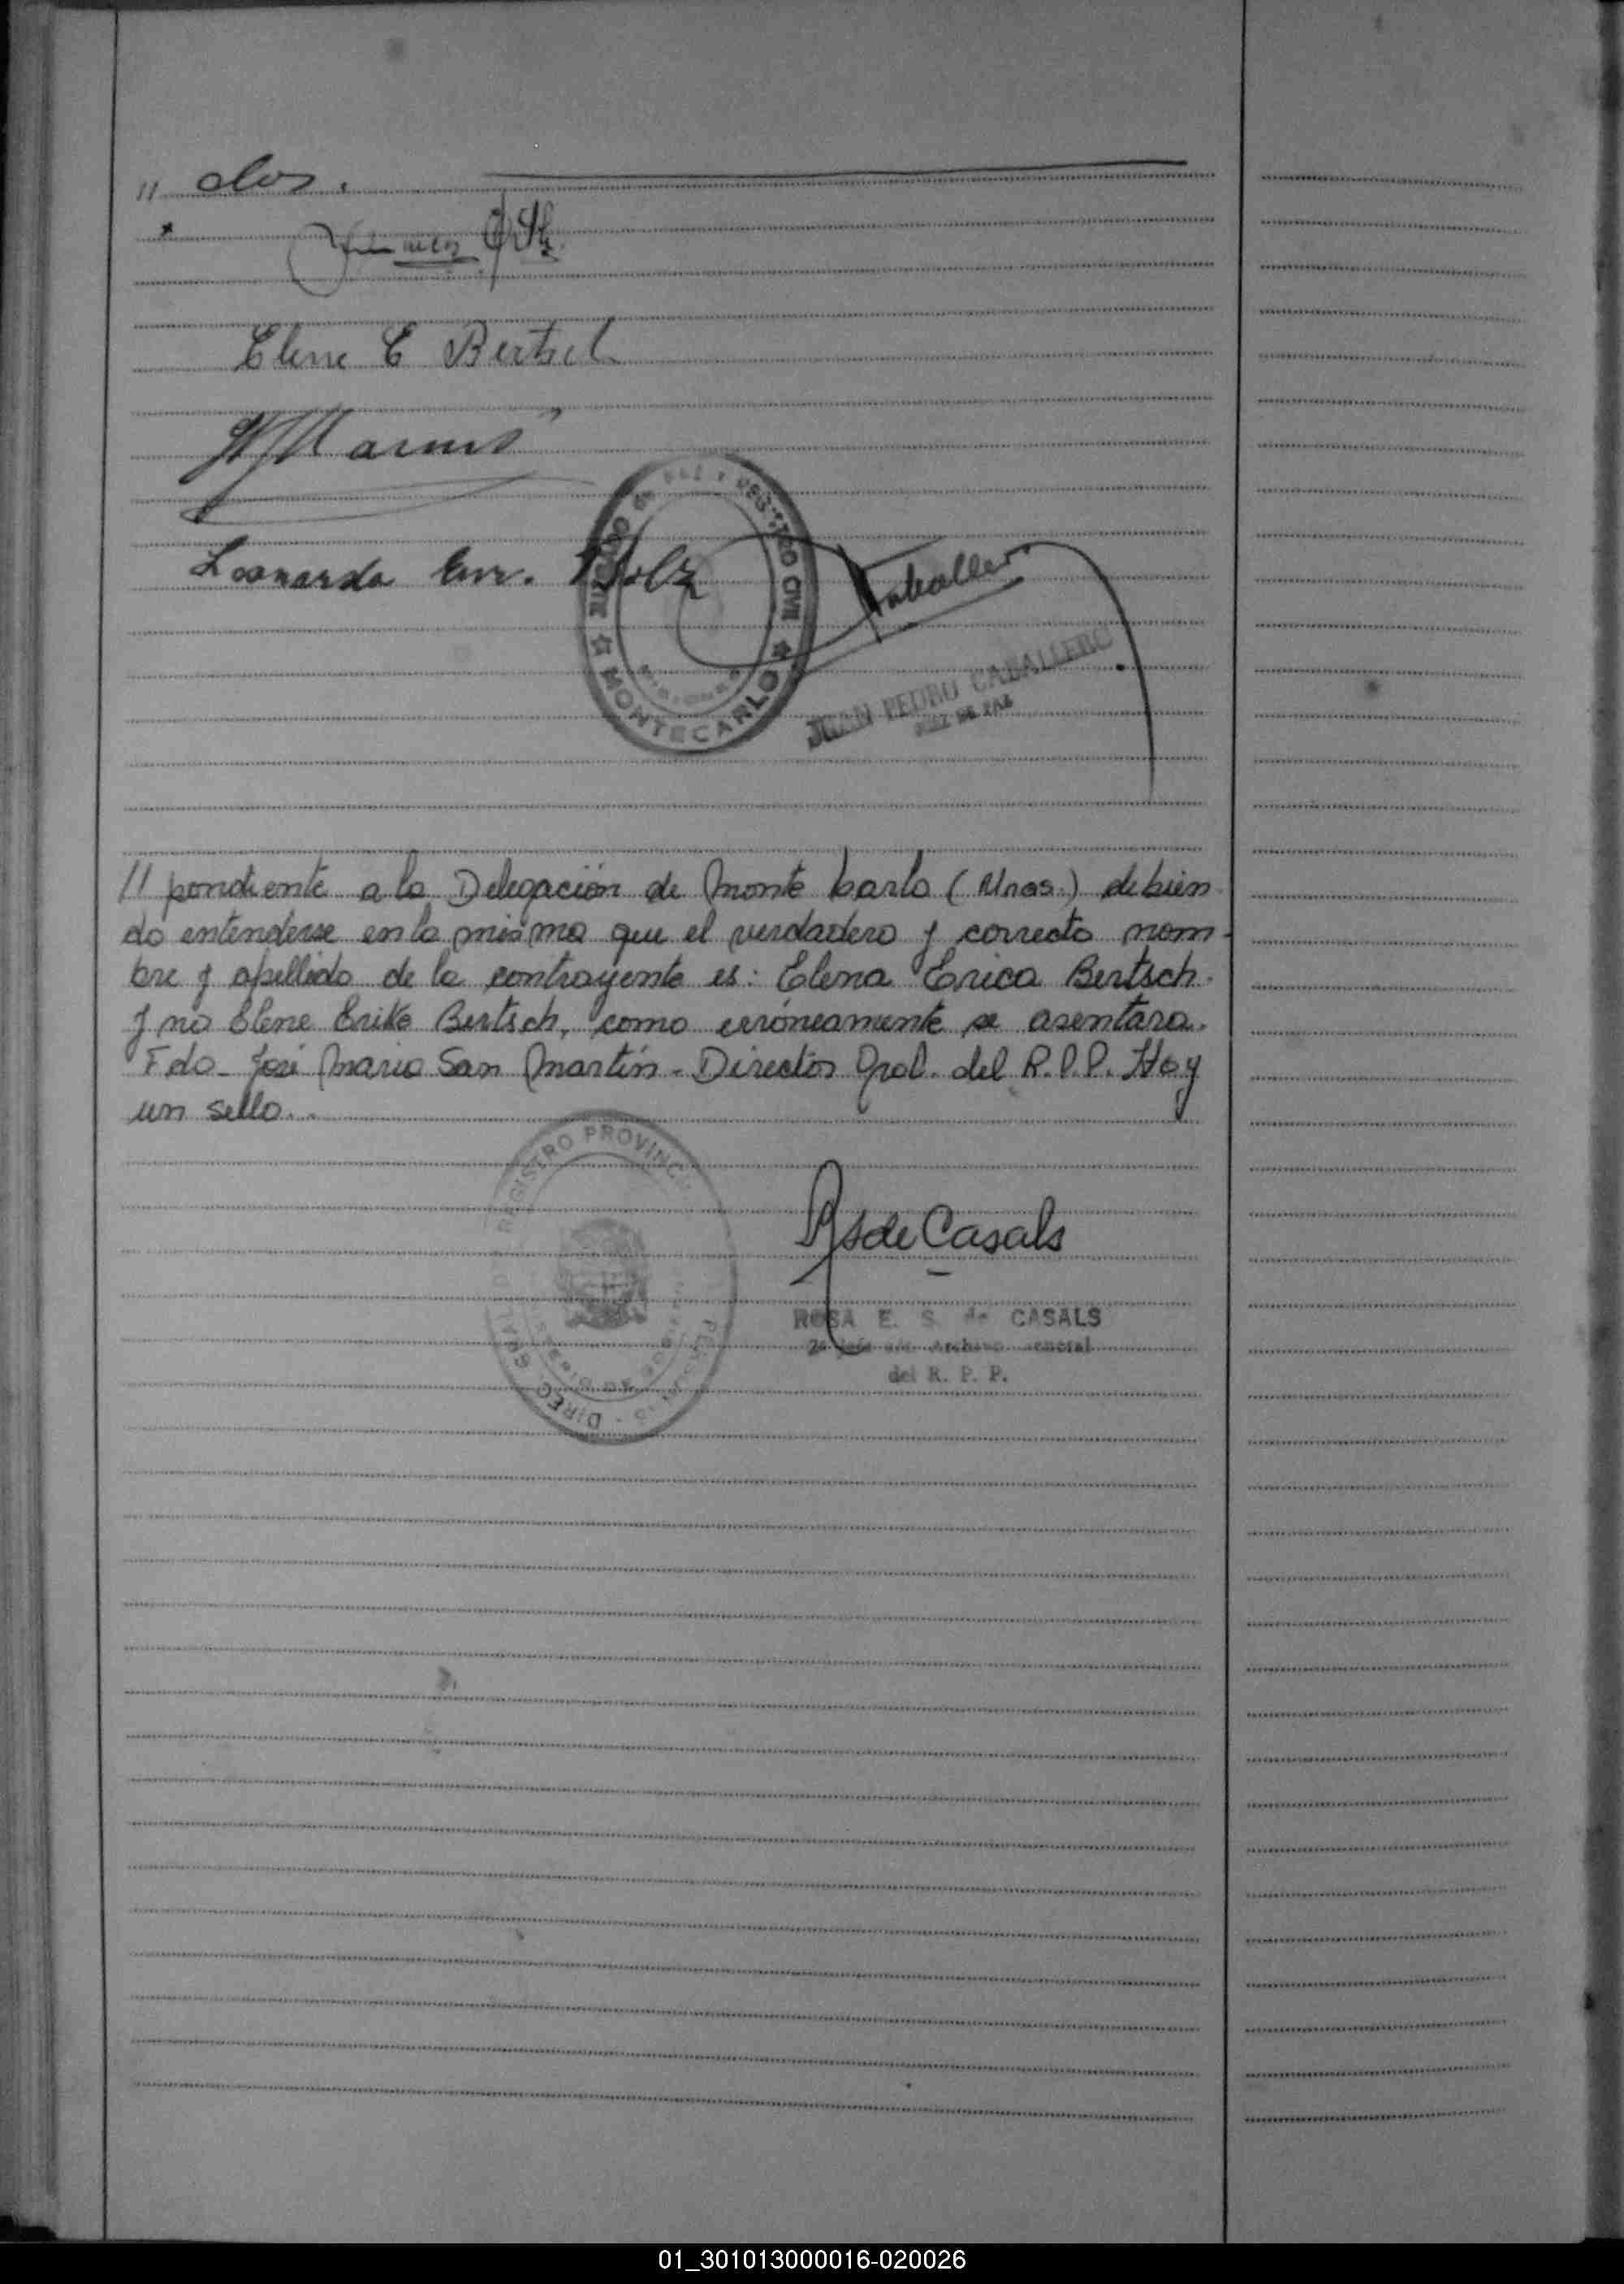 // dos.
Elene E Bertsch
Leonardo Enr. Holz
Caballero
JUZGADO DE PAZ Y REGISTRO CIVIL
MONTECARLO
JUAN PEDRO CABALLERO
JUEZ DE PAZ
// pondiente a la Delegación de Monte Carlo (Mnes.) debien
do entenderse en la misma que el verdadero y correcto nom-
bre y apellido de la contrayente es: Elena Erica Bertsch.
y no Elene Erika Bertsch, como erróneamente se asentara.
Fdo. José Mario San Martín - Director Gral. del R.P.P. Hay
un sello..
REGISTRO PROVINC
RsdeCasals
ROSA E. S. de CASALS
Archivo General
del R. P. P.
01_301013000016-020026